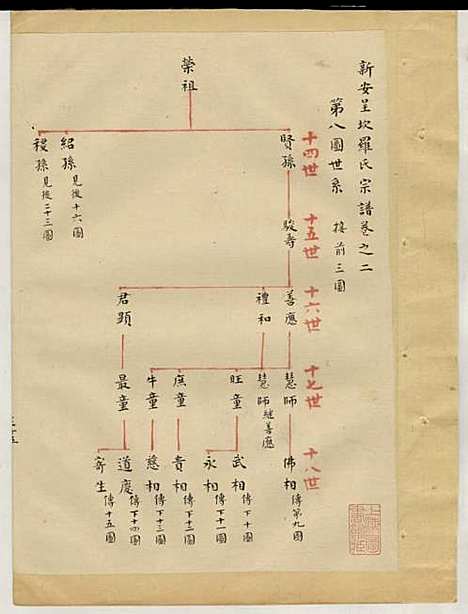 新安呈坎羅氏宗譜卷之二
第八圖世系 接前三圖
十四世
十五世
十六世
十七世
十八世
榮祖
賢孫
紹孫 見後十六圖
稷孫 見後二十三圖
駿壽
善應
禮和
君顯
慧師
慧師 繼善應
旺童
庶童
牛童
最童
佛相 傳第九圖
武相 傳下十圖
永相 傳下十一圖
貴相 傳下十二圖
慈相 傳下十三圖
道慶 傳下十四圖
寄生 傳十五圖